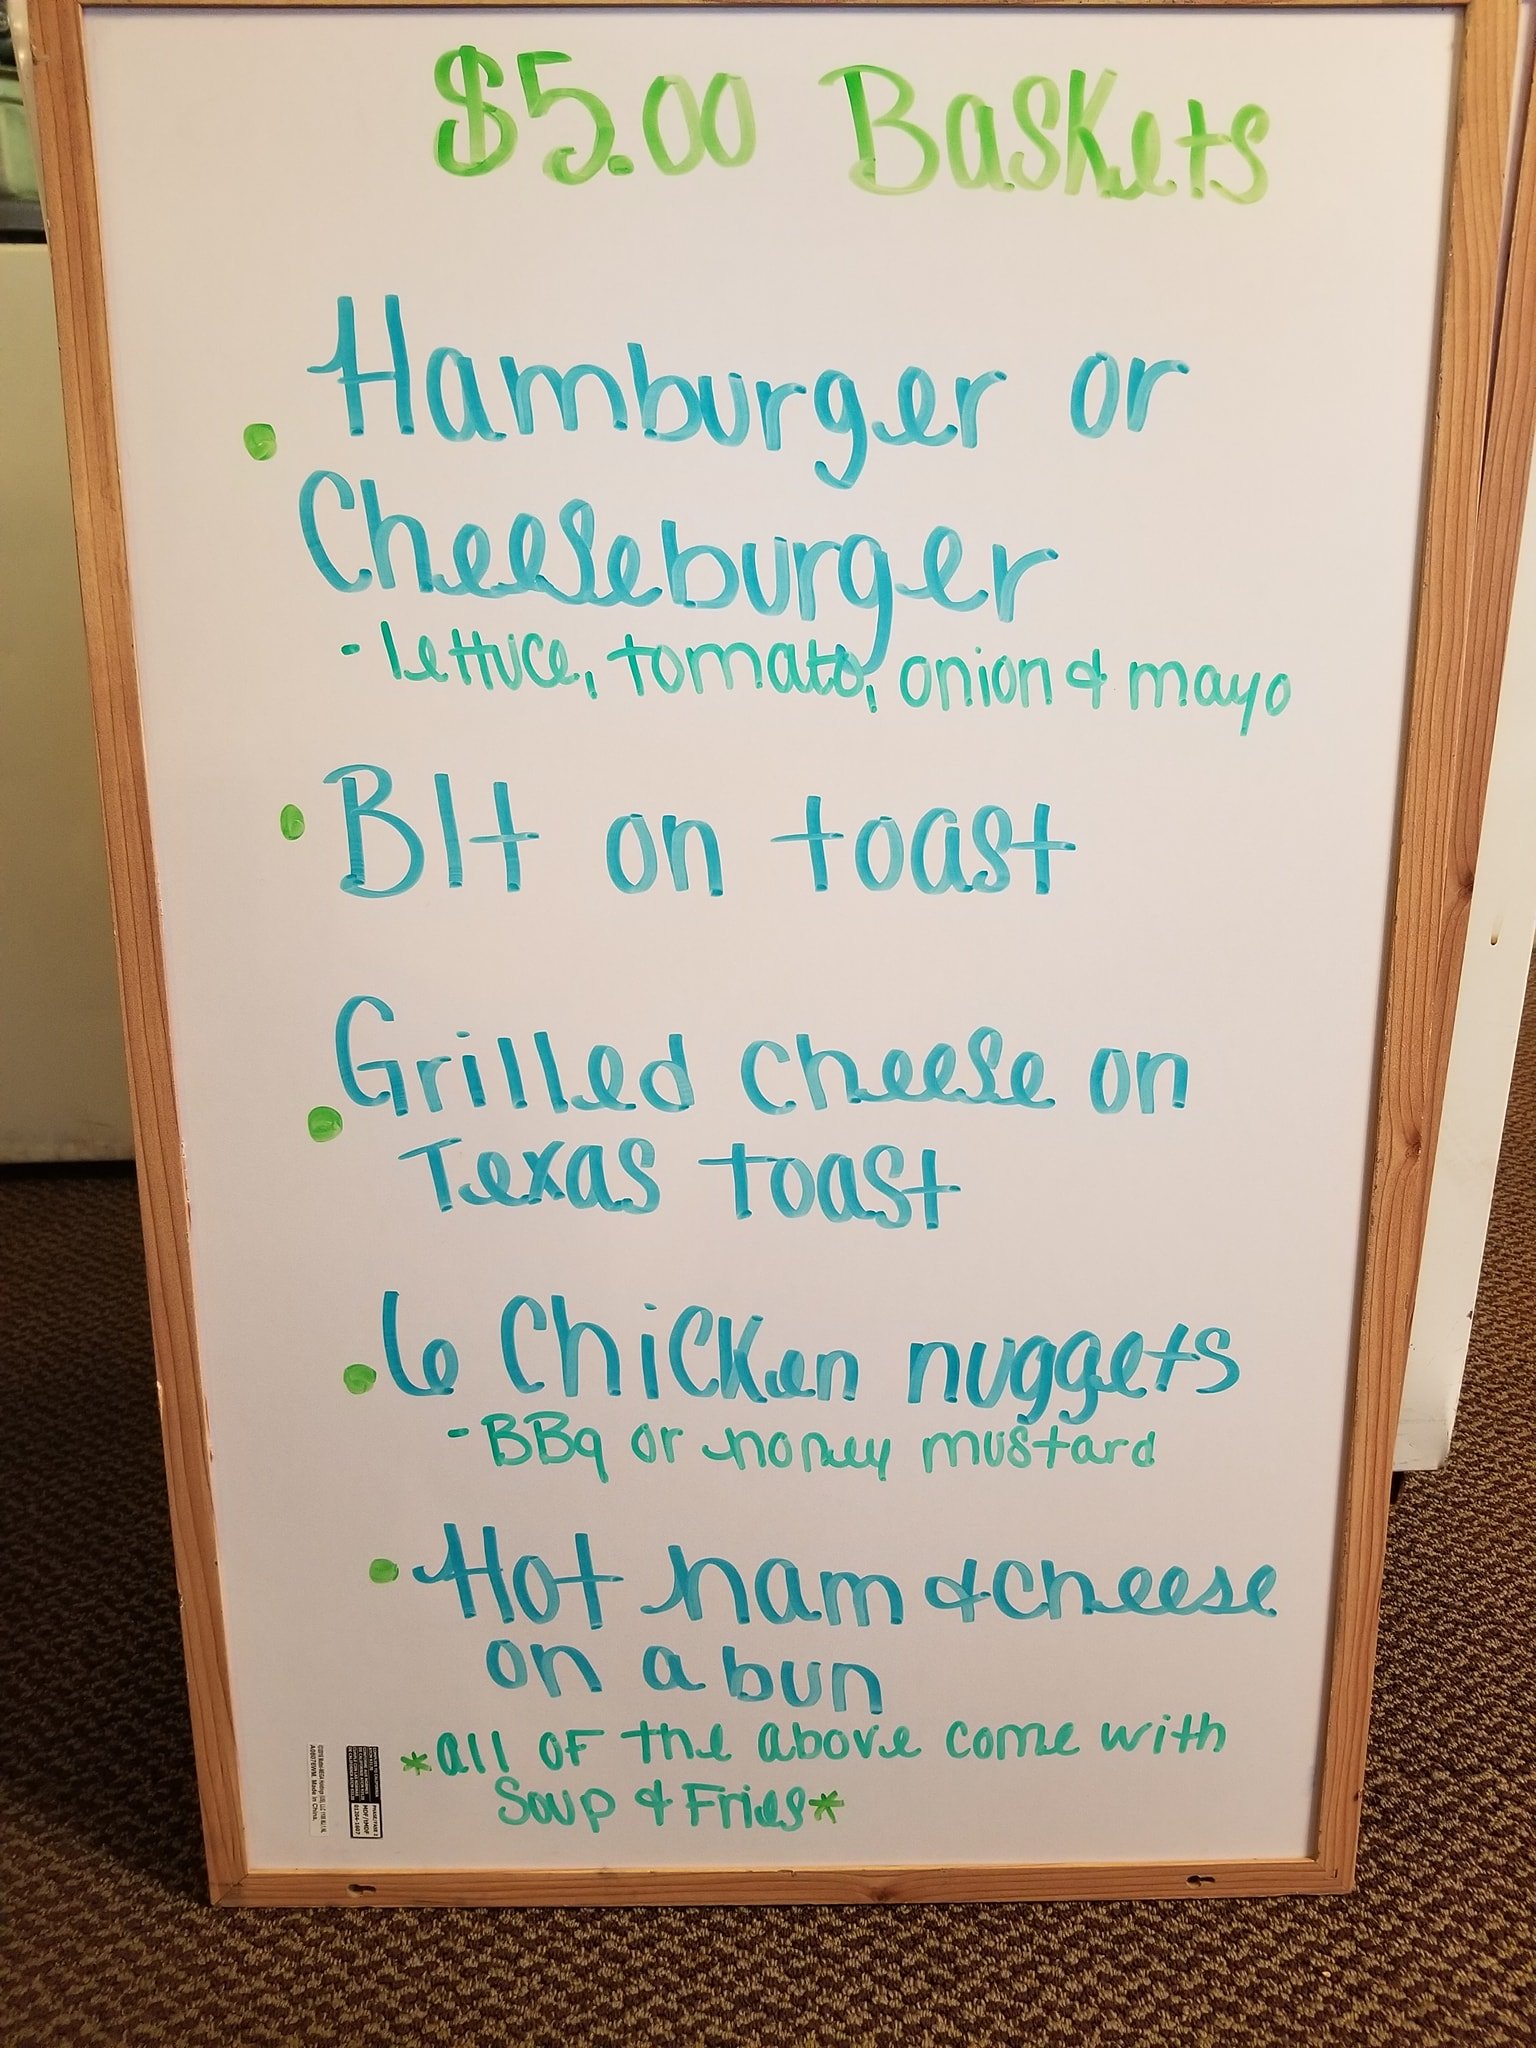 $5.00 Baskets
• Hamburger or
Cheeseburger
- lettuce, tomato, onion & mayo
• Blt on toast
• Grilled cheese on
Texas toast
• 6 Chicken nuggets
- BBq or honey mustard
• Hot ham & cheese
on a bun
*all of the above come with
Soup & Fries*